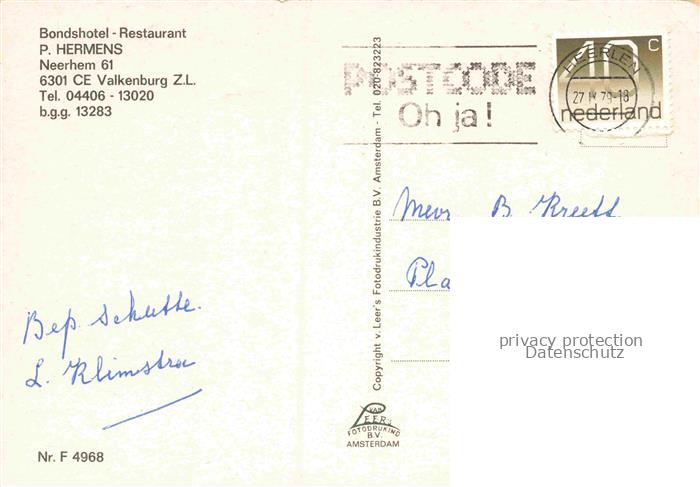 Bondshotel - Restaurant
P. HERMENS
Neerhem 61
6301 CE Valkenburg Z.L.
Tel. 04406 - 13020
b.g.g. 13283
POSTCODE
Oh ja!
HEERLEN
27 IX 79-18
40 c
nederland
Copyright v. Leer's Fotodrukindustrie B.V. Amsterdam - Tel. 020-823223
Mevr B.
Pla
privacy protection
Datenschutz
Bep Schutte.
L. Klimstra
VAN
LEER's
FOTODRUKIND
B.V.
AMSTERDAM
Nr. F 4968